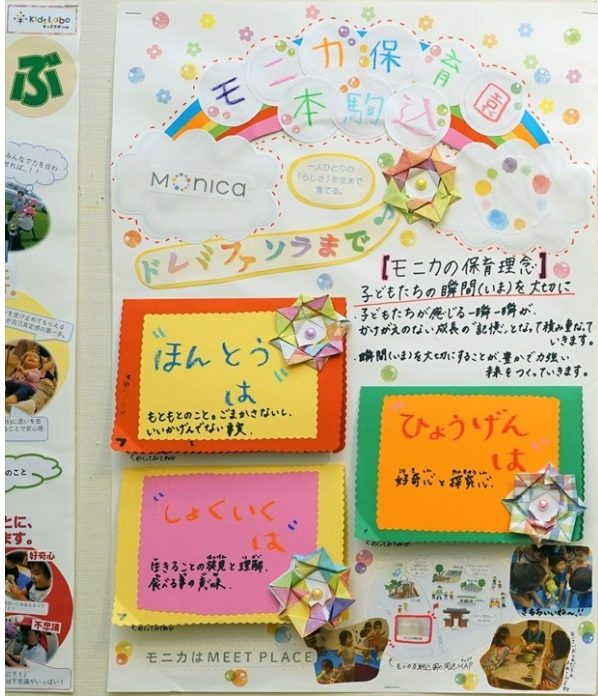 Kids Labo
ぶ
みんなで力を合わ
好奇心
不思議
モニカ保育園
本駒込
MOnica
一人ひとりの
「らしさ」を空まで
育てる。
ドレミファソラまで♪
【モニカの保育理念】
子どもたちの瞬間(いま)を大切に
・子どもたちが感じる一瞬一瞬が、
かけがえのない成長の"記憶"となって積み重なて
いきます。
・瞬間(いま)を大切にすることが、豊かで力強い
未来をつくっていきます。
"ほんとう
は"
もともとのこと。ごまかさないし、
いいかげんでない事実。
"ひょうげん
は"
好奇心と探究心。
"しょくいく
は"
生きることの発見と理解。
食べる事の美味。
モニカはMEET PLACE
きもちいいねん!!